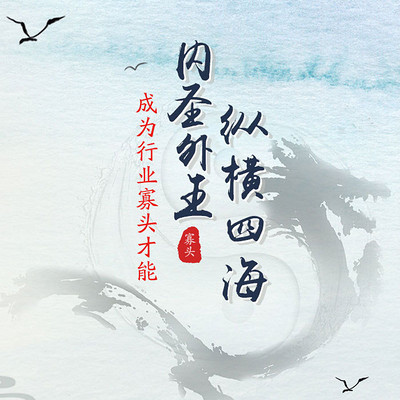 成为行业寡头才能
内圣外王
纵横四海
寡头